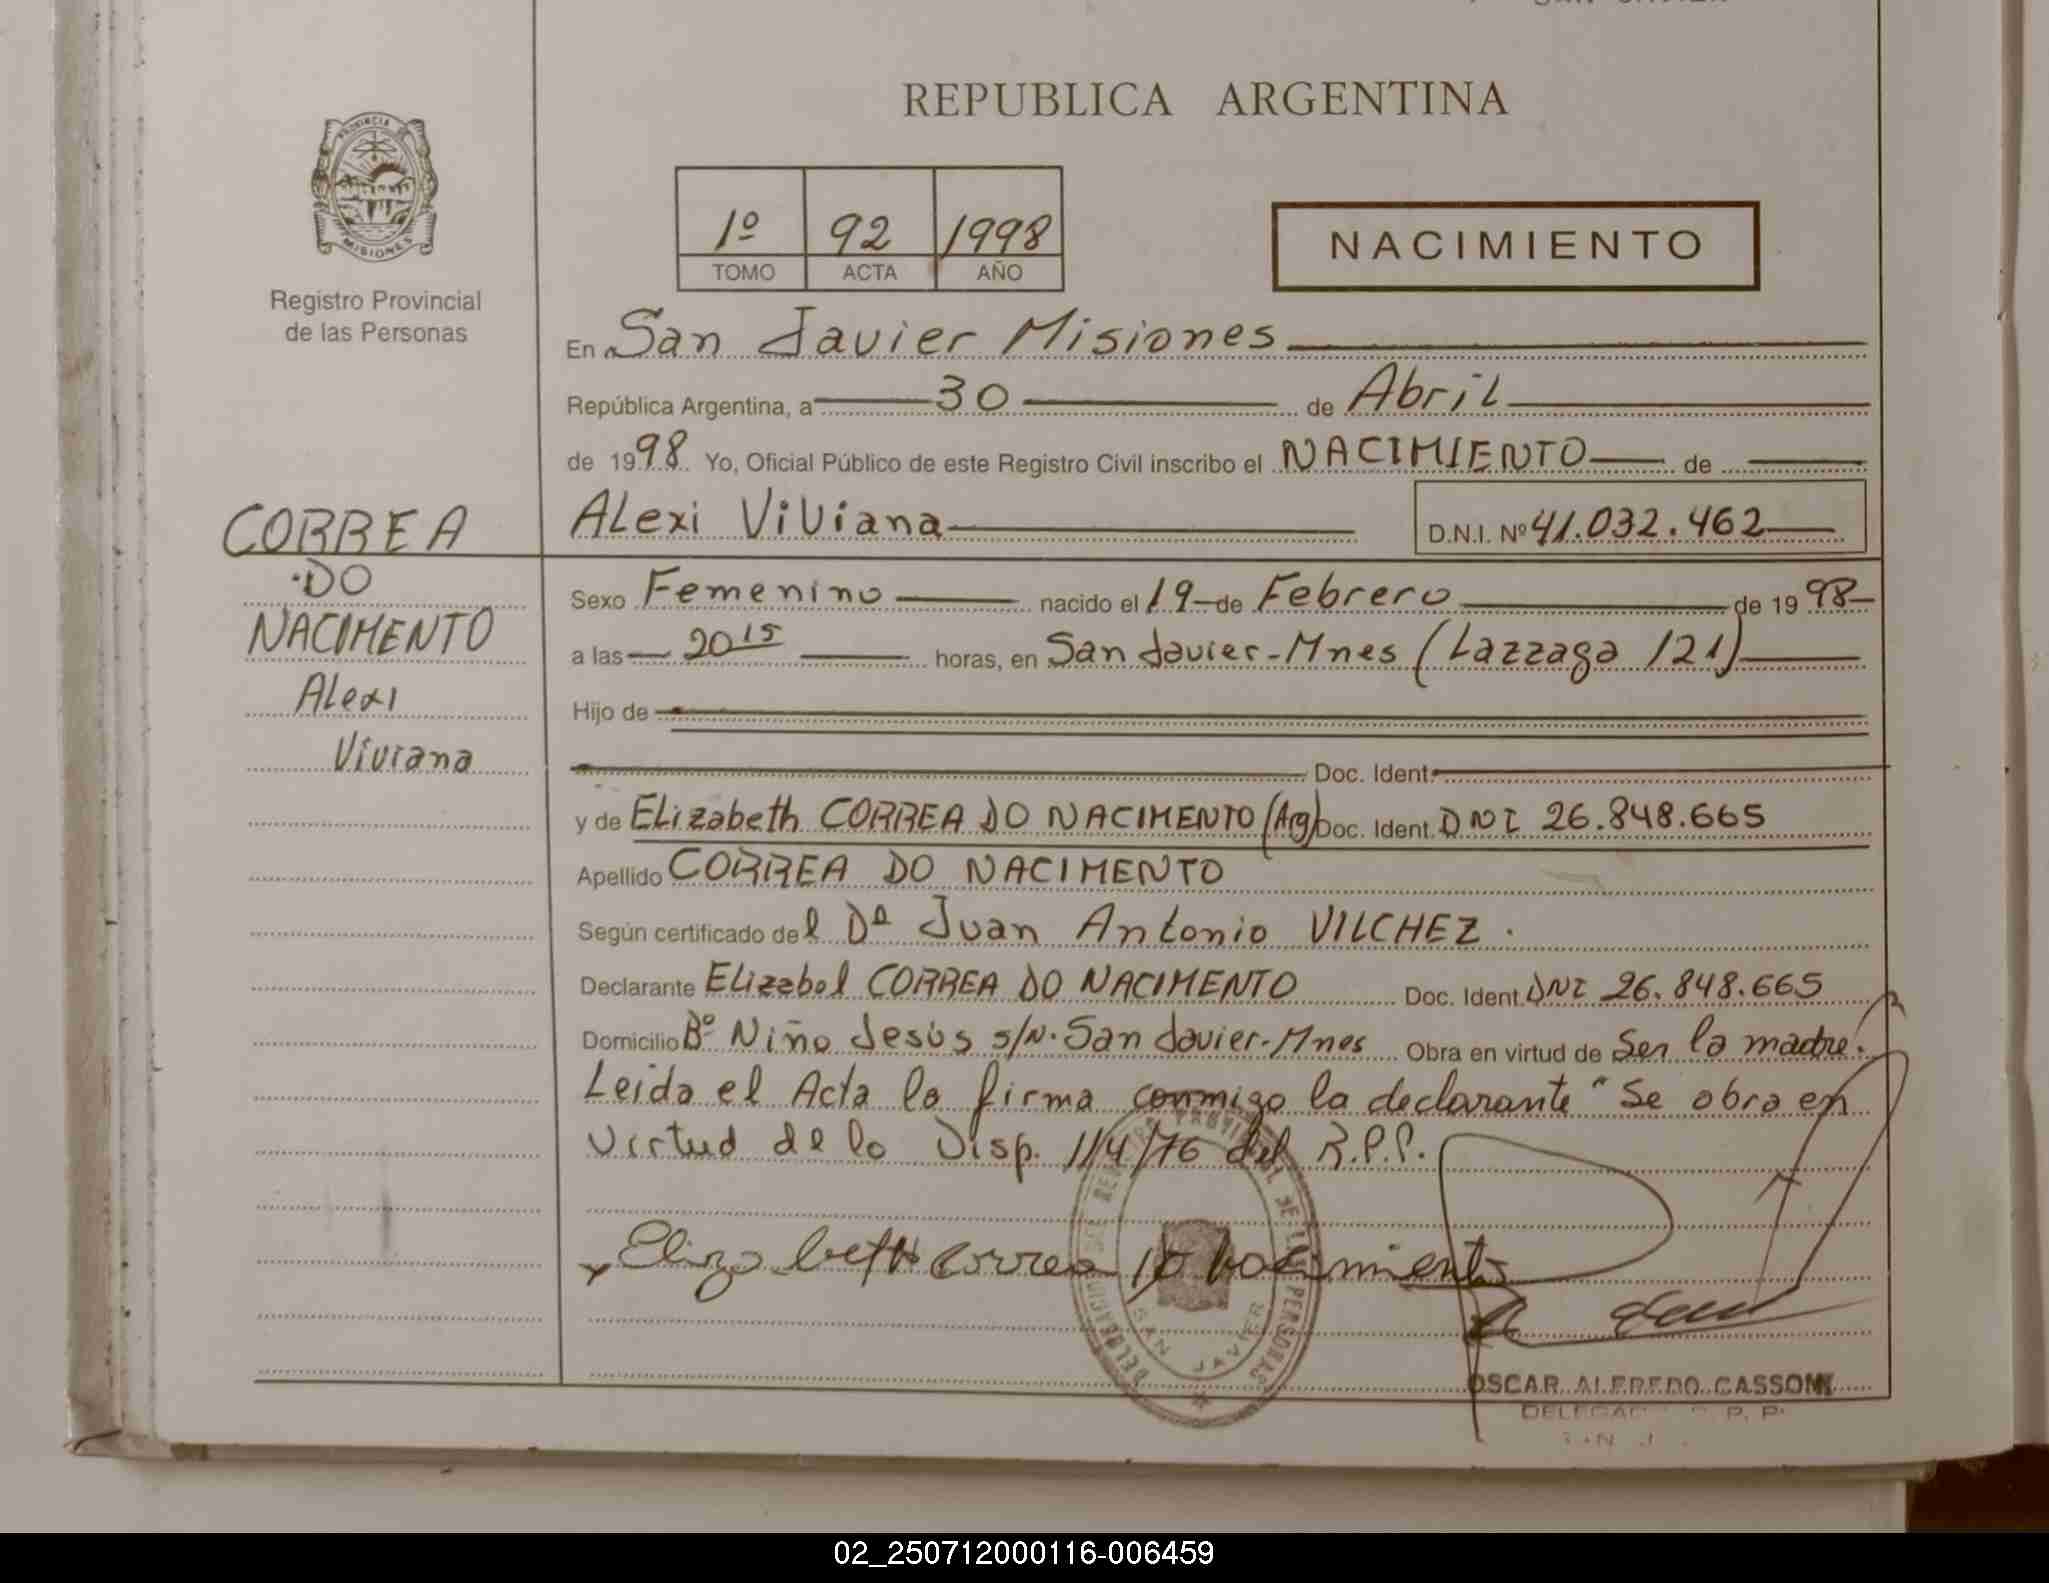 REPUBLICA ARGENTINA
PROVINCIA DE
MISIONES
Registro Provincial
de las Personas
1º 92 1998
TOMO ACTA AÑO
NACIMIENTO
En San Javier Misiones
República Argentina, a 30 de Abril
de 1998. Yo, Oficial Público de este Registro Civil inscribo el NACIMIENTO de
ALexi ViViana D.N.I. Nº 41.032.462
CORREA
DO
NACIMENTO
ALexi
Viviana
Sexo Femenino nacido el 19 de Febrero de 1998
a las 20 15 horas, en San Javier-Mnes (Lazzaga 121)
Hijo de
Doc. Ident.
y de ELizabeth CORREA DO NACIMENTO (Arg) Doc. Ident. DNI 26.848.665
Apellido CORREA DO NACIMENTO
Según certificado del Dº Juan Antonio VILCHEZ.
Declarante ELizabel CORREA DO NACIMENTO Doc. Ident. DNI 26.848.665
Domicilio Bº Niño Jesús s/N. San Javier-Mnes Obra en virtud de Ser la madre.
Leida el Acta la firma conmigo la declarante "Se obra en
Virtud de la Disp. 114/76 del R.P.P.
Elizabeth Correa
SAN JAVIER
OSCAR ALFREDO CASSONI
P. P.
02_250712000116-006459